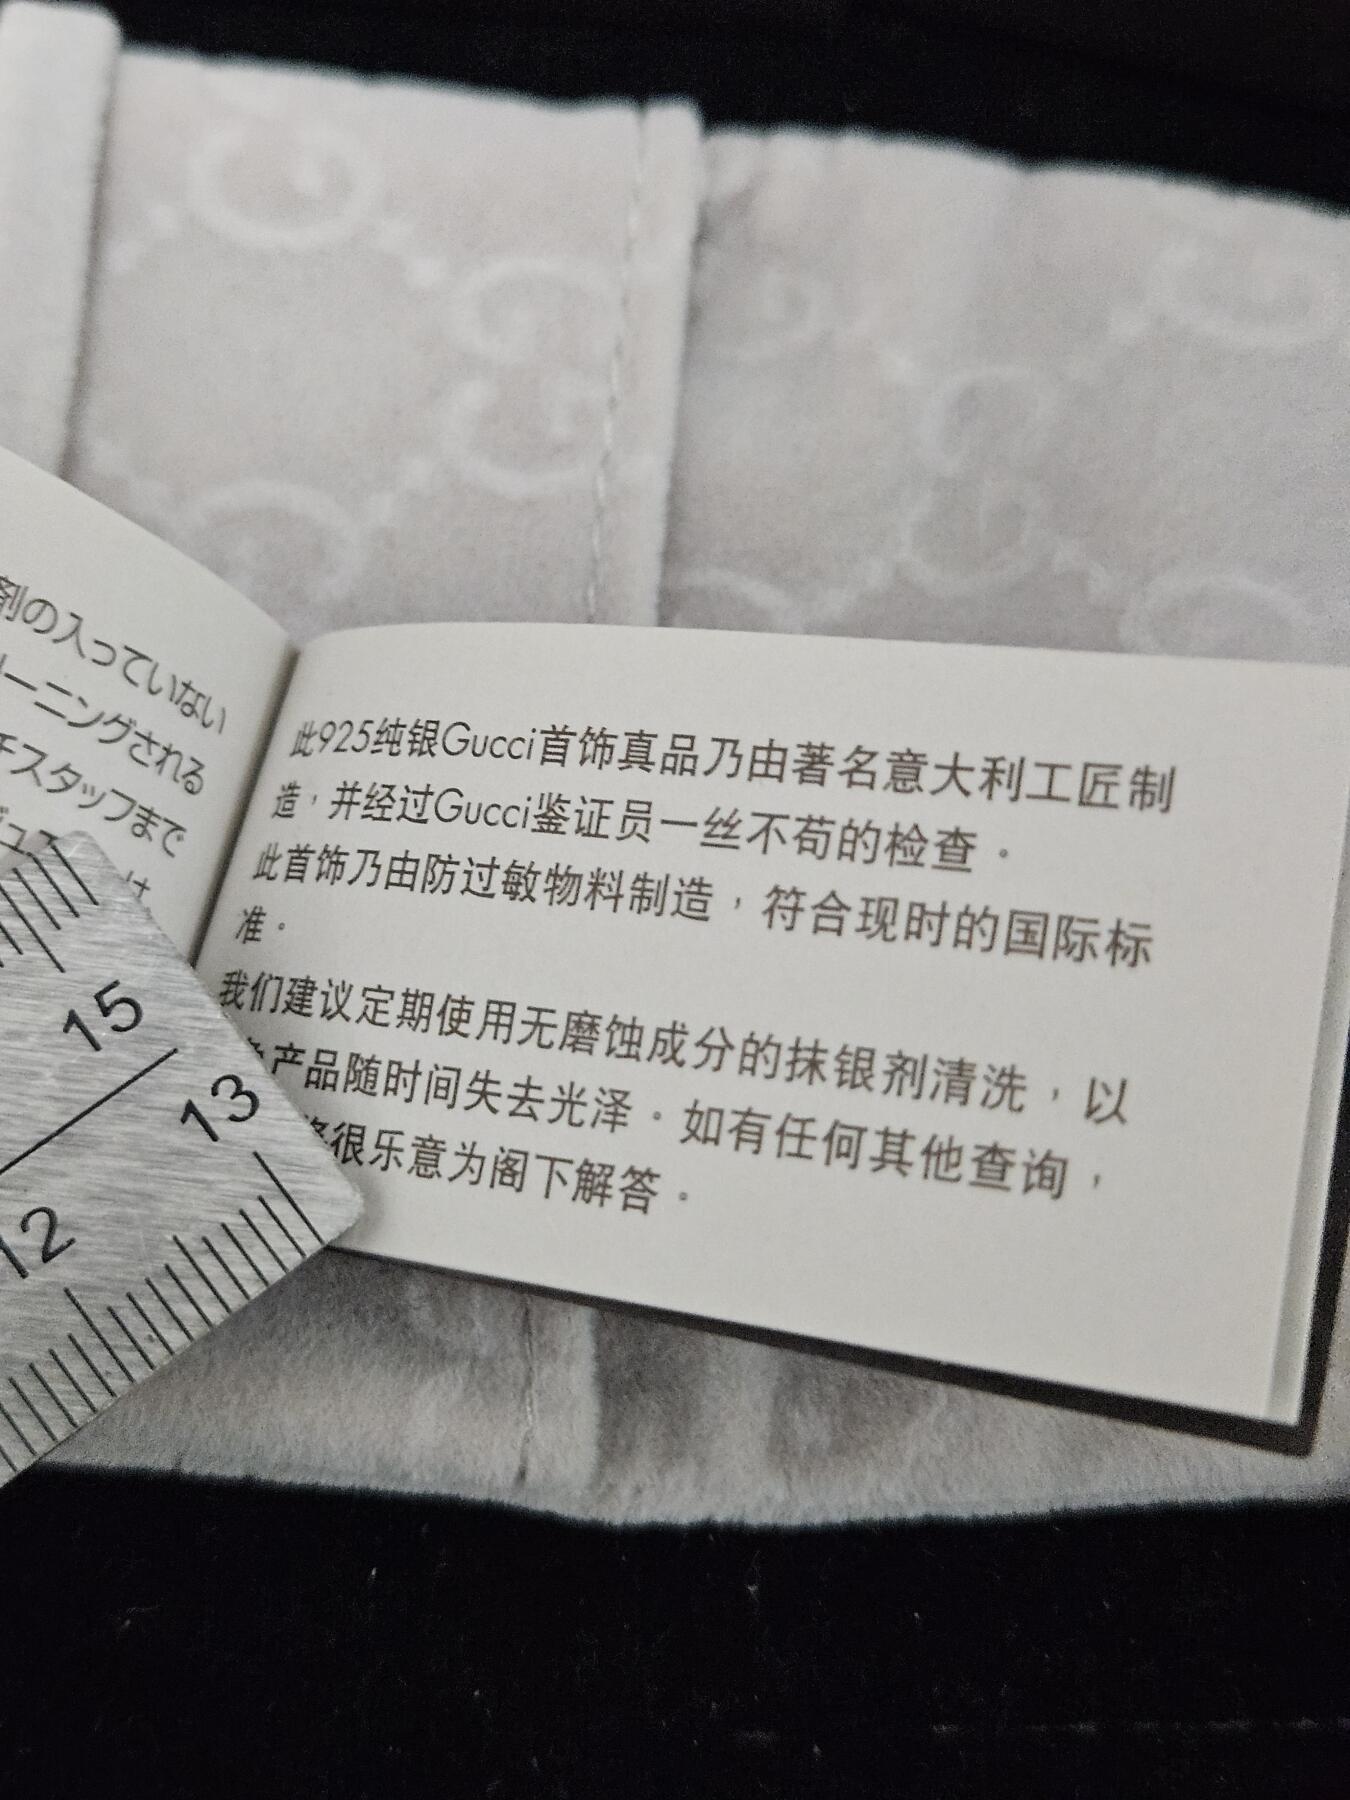 剤の入っていない
ーニングされる
チスタッフまで
は
此925纯银Gucci首饰真品乃由著名意大利工匠制
造，并经过Gucci鉴证员一丝不苟的检查。
此首饰乃由防过敏物料制造，符合现时的国际标
准。
我们建议定期使用无磨蚀成分的抹银剂清洗，以
产品随时间失去光泽。如有任何其他查询，
很乐意为阁下解答。
15
13
12